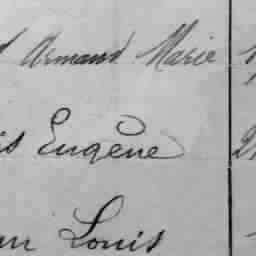 Armand Marie
is Eugène
an Louis